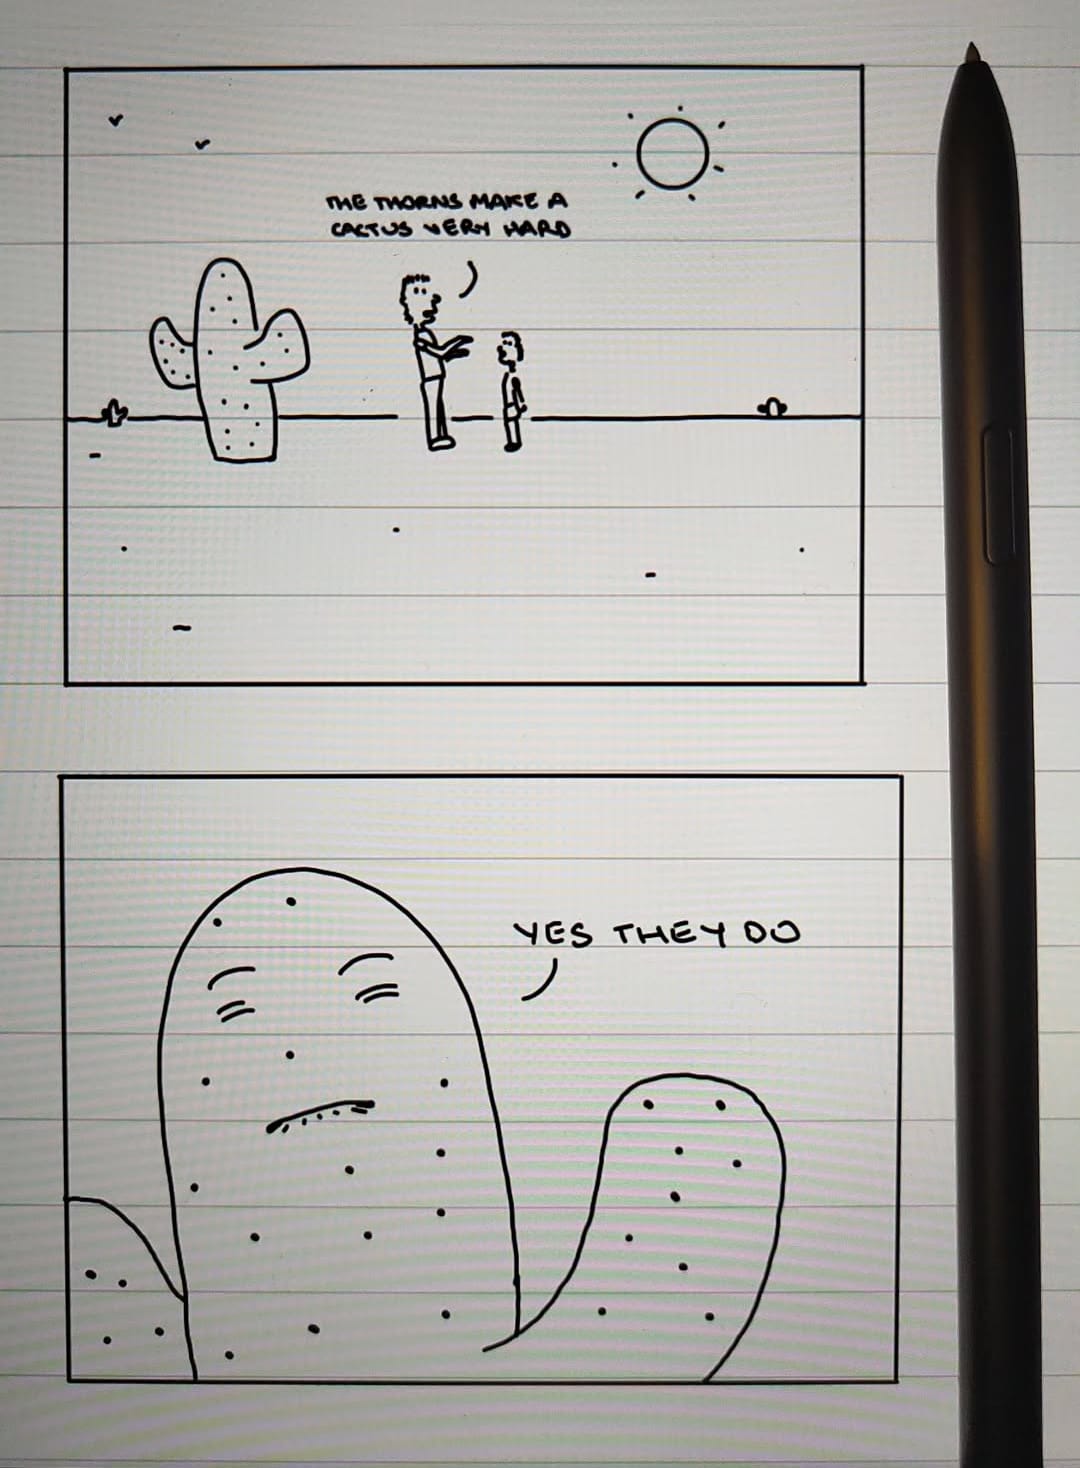 THE THORNS MAKE A
CACTUS VERY HARD
YES THEY DO